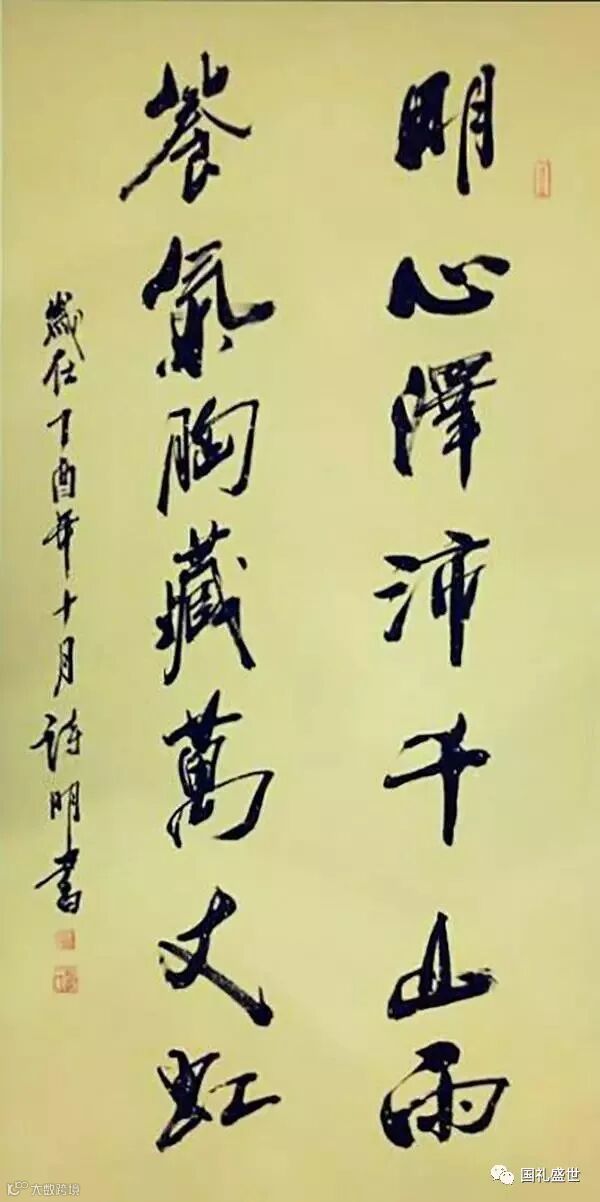 明心澤沛千山雨
養氣胸藏萬丈虹
歲在丁酉年十月詩明書
国礼盛世
大数跨境